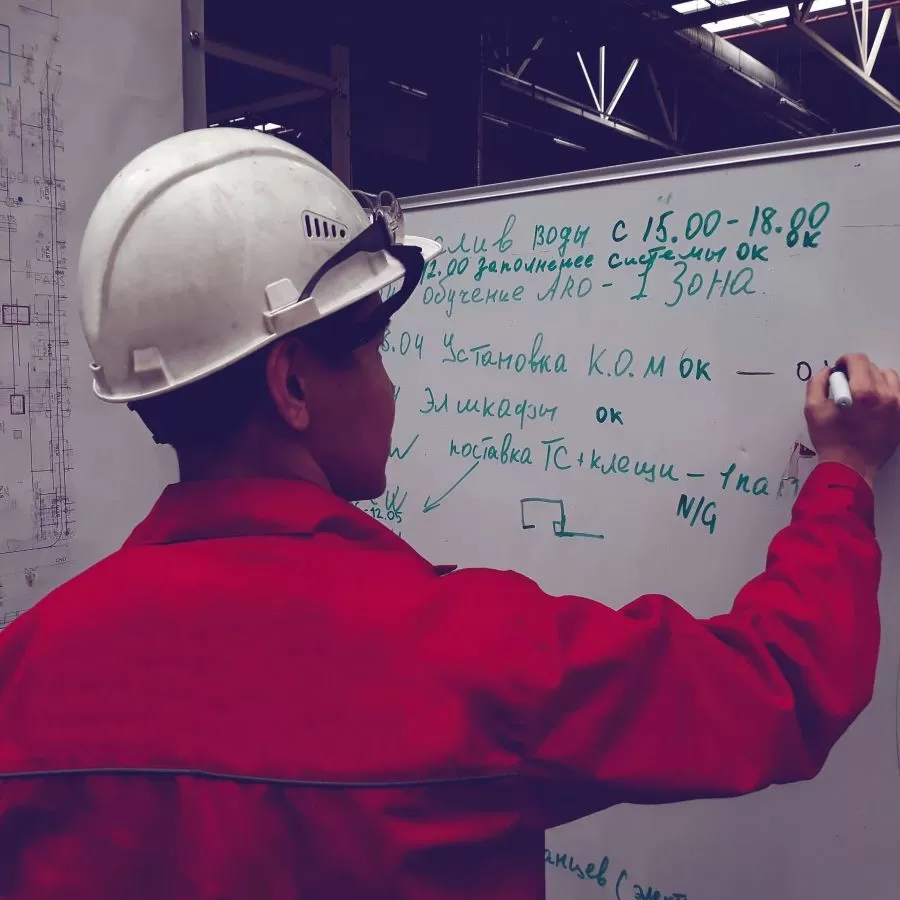 воды с 15.00-18.00 ок
12.00 заполненее системы ок
обучение ARO - 1 Зона
.04 Установка К.О.М ок —
Эл шкафы ок
поставка ТС + клещи - 1 па
N/G
-12.05